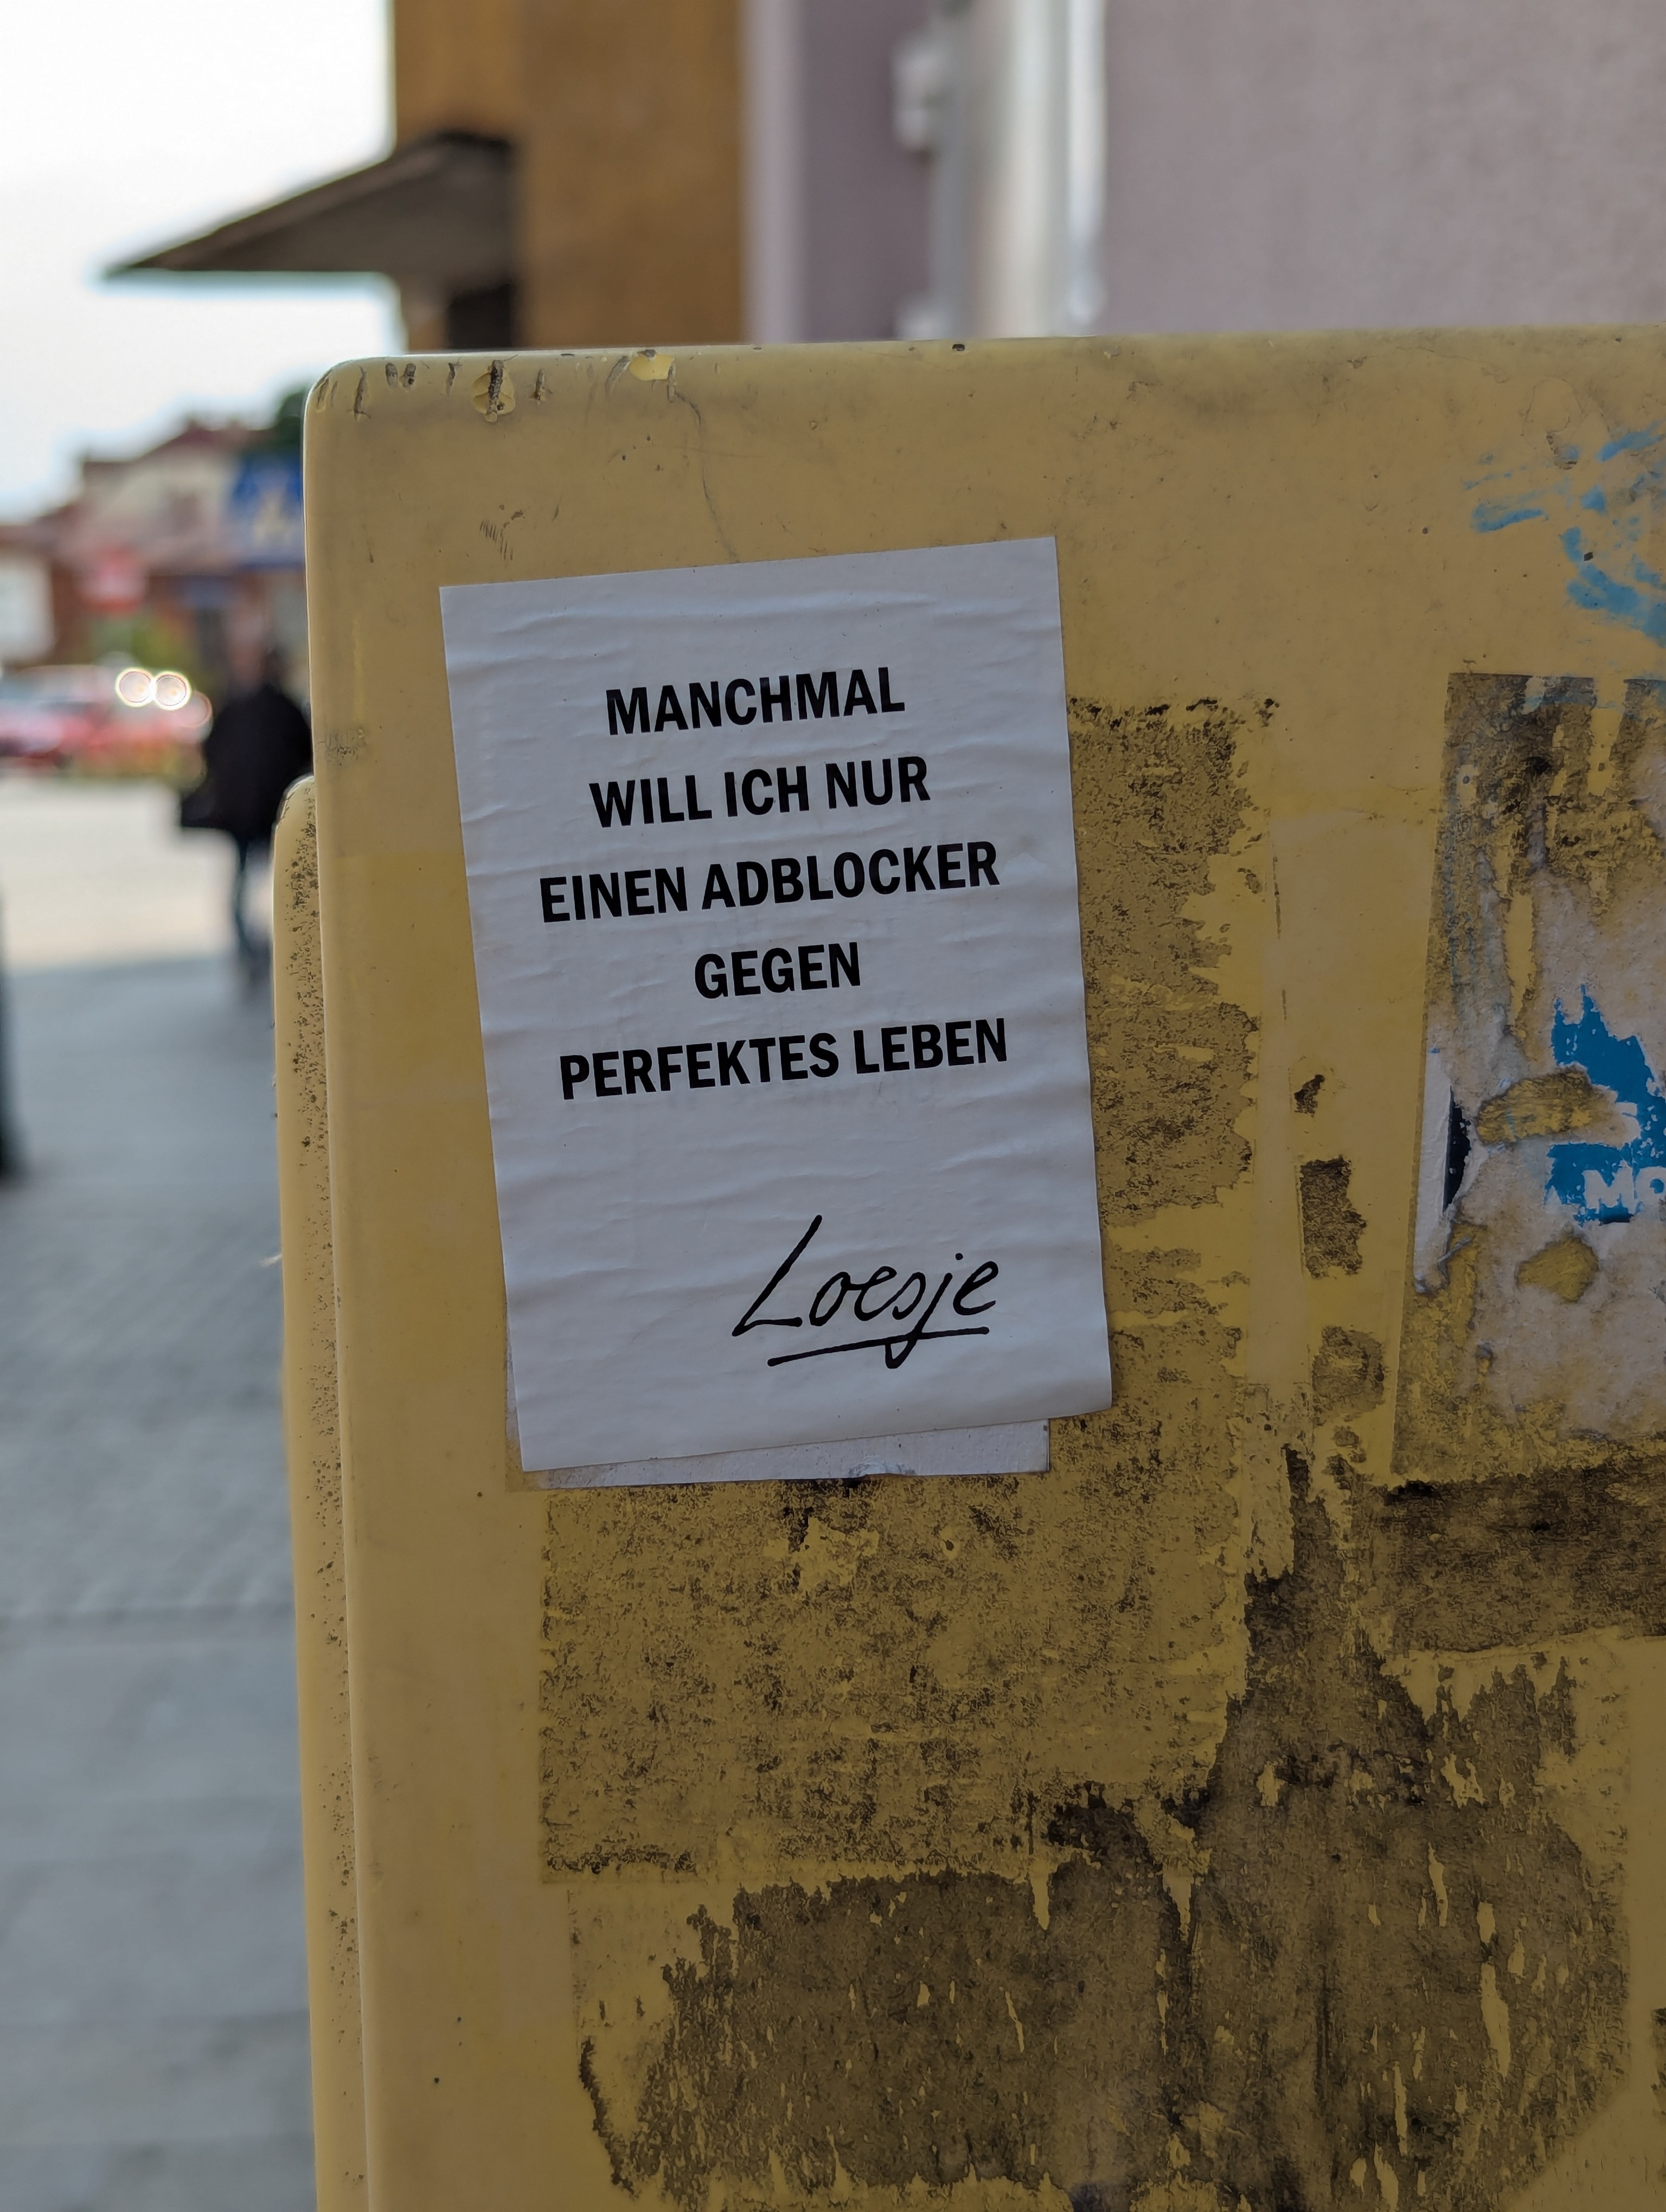 MANCHMAL
WILL ICH NUR
EINEN ADBLOCKER
GEGEN
PERFEKTES LEBEN
Loesje